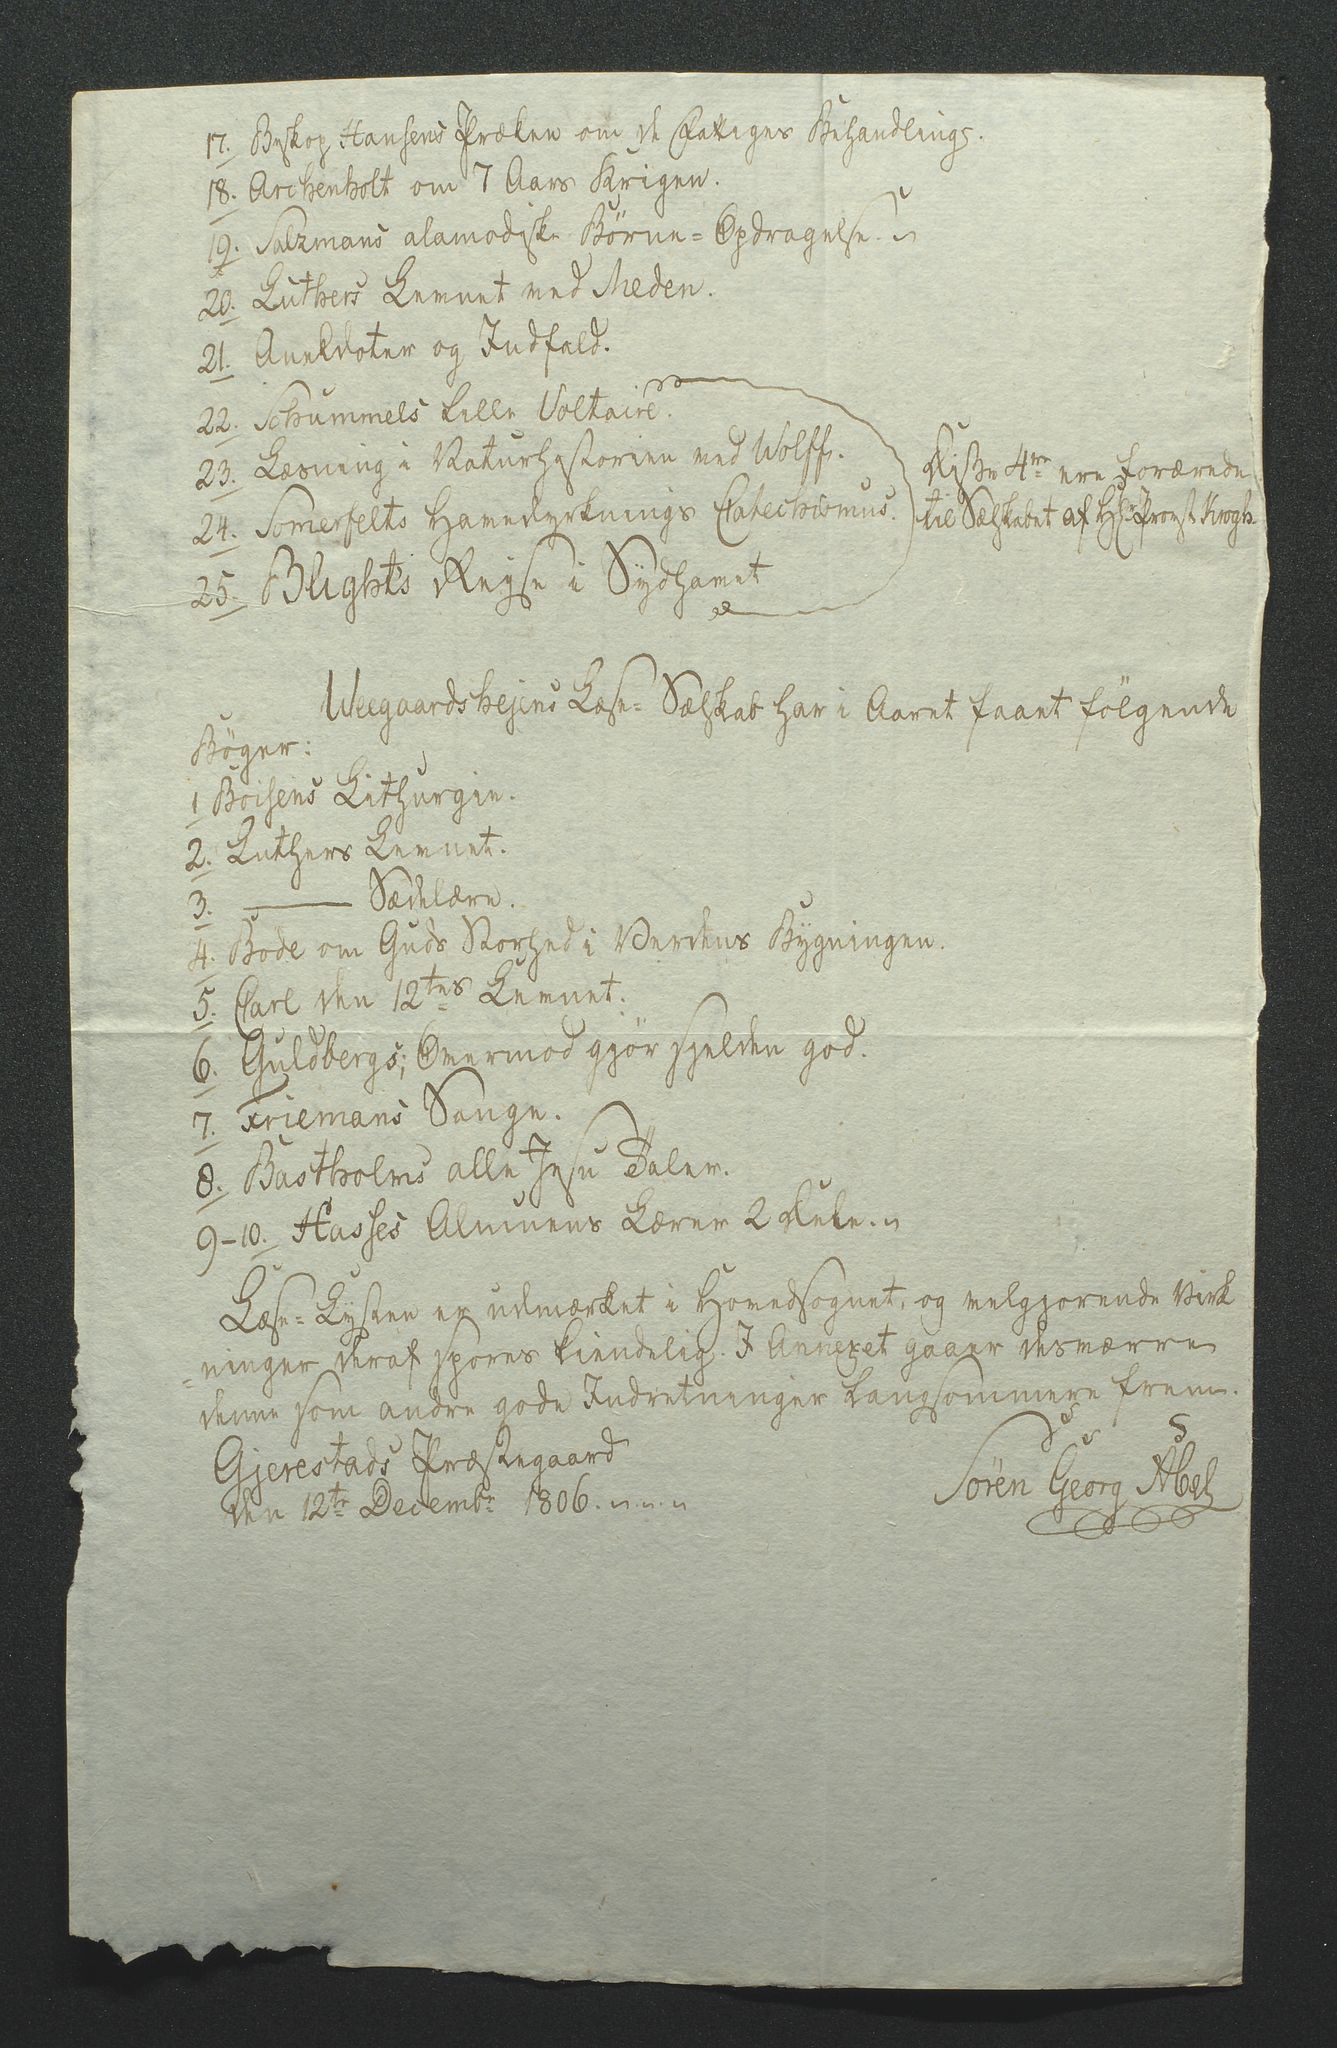 17. Biskop Hansens Præken om de Fattiges Behandling.
18. Archenholt om 7 Aars Krigen.
19. Salzmans alamodiske Börne= Opdragelse.
20. Luthers Levnet ved Meden.
21. Anekdoter og Indfald.
22. Schummels lille Voltaire.
23. Læsning i Naturhistorien ved Wolff.
24. Somerfelts Havedyrknings Catechismus.
25. Blights Reyse i Sydhavet
Disse 4re ere forærede
til Selskabet af Hr Provst Krogh
Weegaardshejens Læse= Selskab har i Aaret faaet fölgende
Böger:
1 Boisens Lithurgie.
2. Luthers Levnet.
3. ——— Sædelære.
4. Bode om Guds Storhed i Verdens Bygningen.
5. Carl den 12tes Levnet.
6. Guldbergs; Overmod gjör sjelden god.
7. Friemans Sange.
8. Bastholms alle Jesu Taler.
9-10. Hasses Almuens Lærer 2 Dele.
Læse= Lysten er udmærket i Hovedsognet, og velgjorende Virk
=ninger deraf spores kiendelig. I Annexet gaaer desværre
denne som andre gode Indretninger langsommere frem.
Gjerestads Præstegaard
den 12te Decembr 1806.
Sören Georg Abel